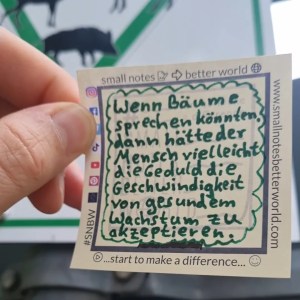 small notes better world
Wenn Bäume
sprechen könnten,
dann hätte der
Mensch vielleicht
die Geduld die
Geschwindigkeit
von gesundem
Wachstum zu
akzeptieren.
...start to make a difference...
#SNBW
www.smallnotesbetterworld.com